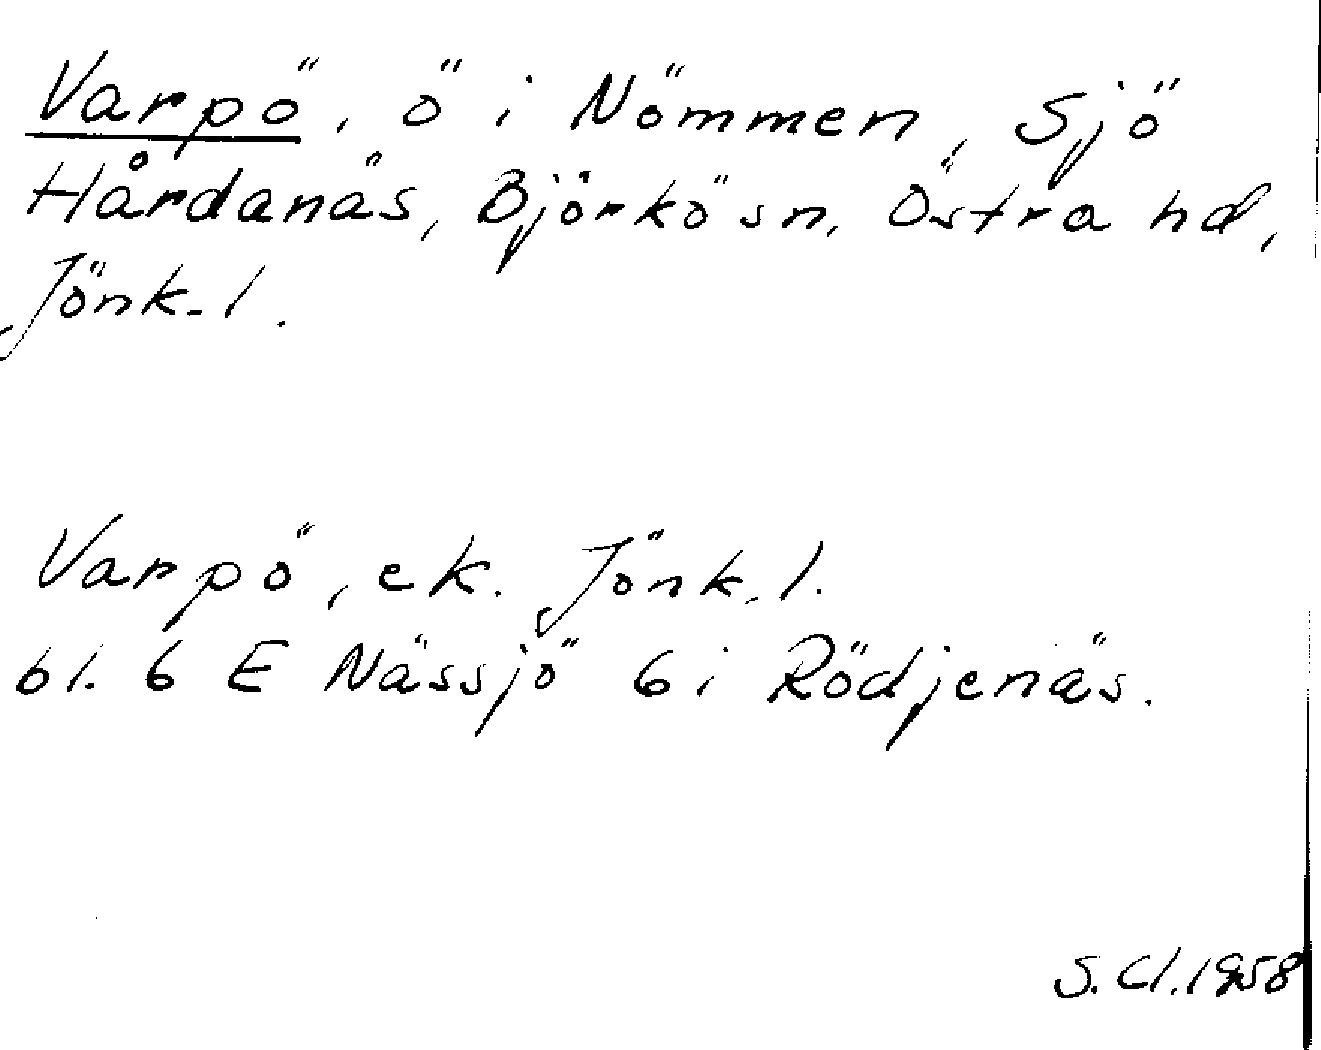 Varpö, ö i Nömmen, Sjö
Hårdanäs, Björkö sn, Östra hd,
Jönk.l.
Varpö, ek. Jönk.l.
bl. 6 E Nässjö 6 i Rödjenäs.
S. Cl. 1958